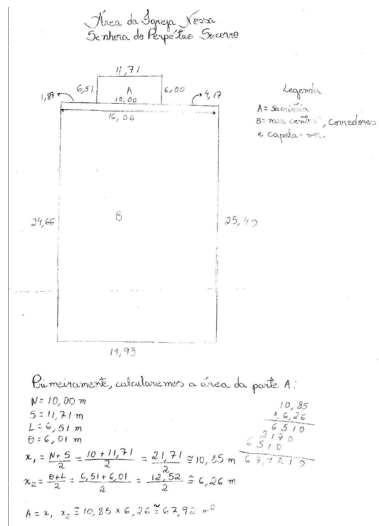 Área da Igreja Nossa
Senhora do Perpétuo Socorro
11,71
1,89
6,51
A
6,00
4,17
10,00
16,06
Legenda
A = sacristia
B = nave central, corredores
e capela-mor.
24,66
B
25,45
14,93
Primeiramente, calcularemos a área da parte A:
N = 10,00 m
S = 11,71 m
L = 6,51 m
O = 6,01 m
10,85
x 6,26
6510
2170
6510
x₁ = N+S/2 = 10+11,71/2 = 21,71/2 ≅ 10,85 m
x₂ = O+L/2 = 6,51+6,01/2 = 12,52/2 ≅ 6,26 m
A = x₁ x₂ ≅ 10,85 × 6,26 ≅ 67,92 m²